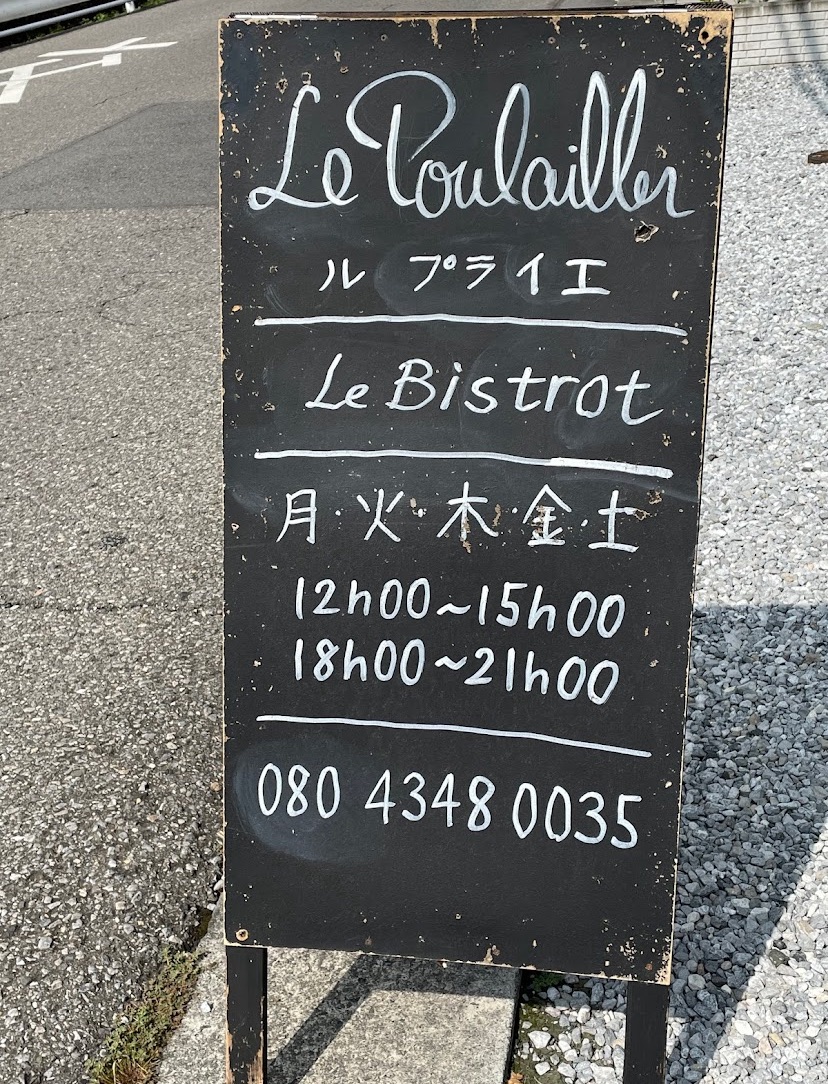 Le Poulailler
ル プライエ
Le Bistrot
月・火・木・金・土
12h00~15h00
18h00~21h00
080 4348 0035